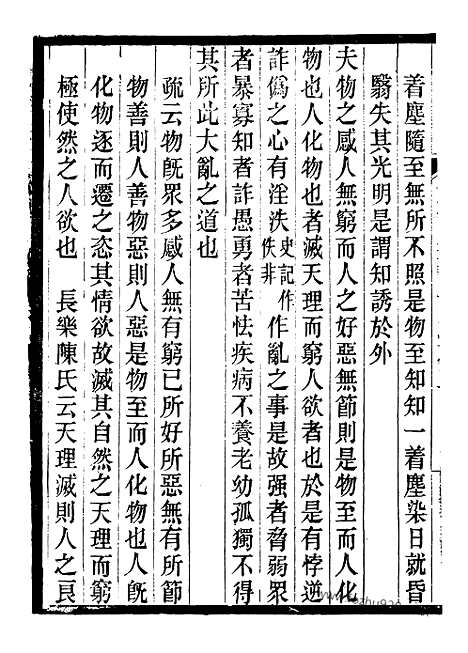 着塵隨至無所不照是物至知知一着塵染日就昏
翳失其光明是謂知誘於外
夫物之感人無窮而人之好惡無節則是物至而人化
物也人化物也者滅天理而窮人欲者也於是有悖逆
詐僞之心有淫泆史記作佚非作亂之事是故强者脅弱眾
者暴寡知者詐愚勇者苦怯疾病不養老幼孤獨不得
其所此大亂之道也
疏云物旣眾多感人無有窮已所好所惡無有所節
物善則人善物惡則人惡是物至而人化物也人旣
化物逐而遷之恣其情欲故滅其自然之天理而窮
極使然之人欲也　長樂陳氏云天理滅則人之良